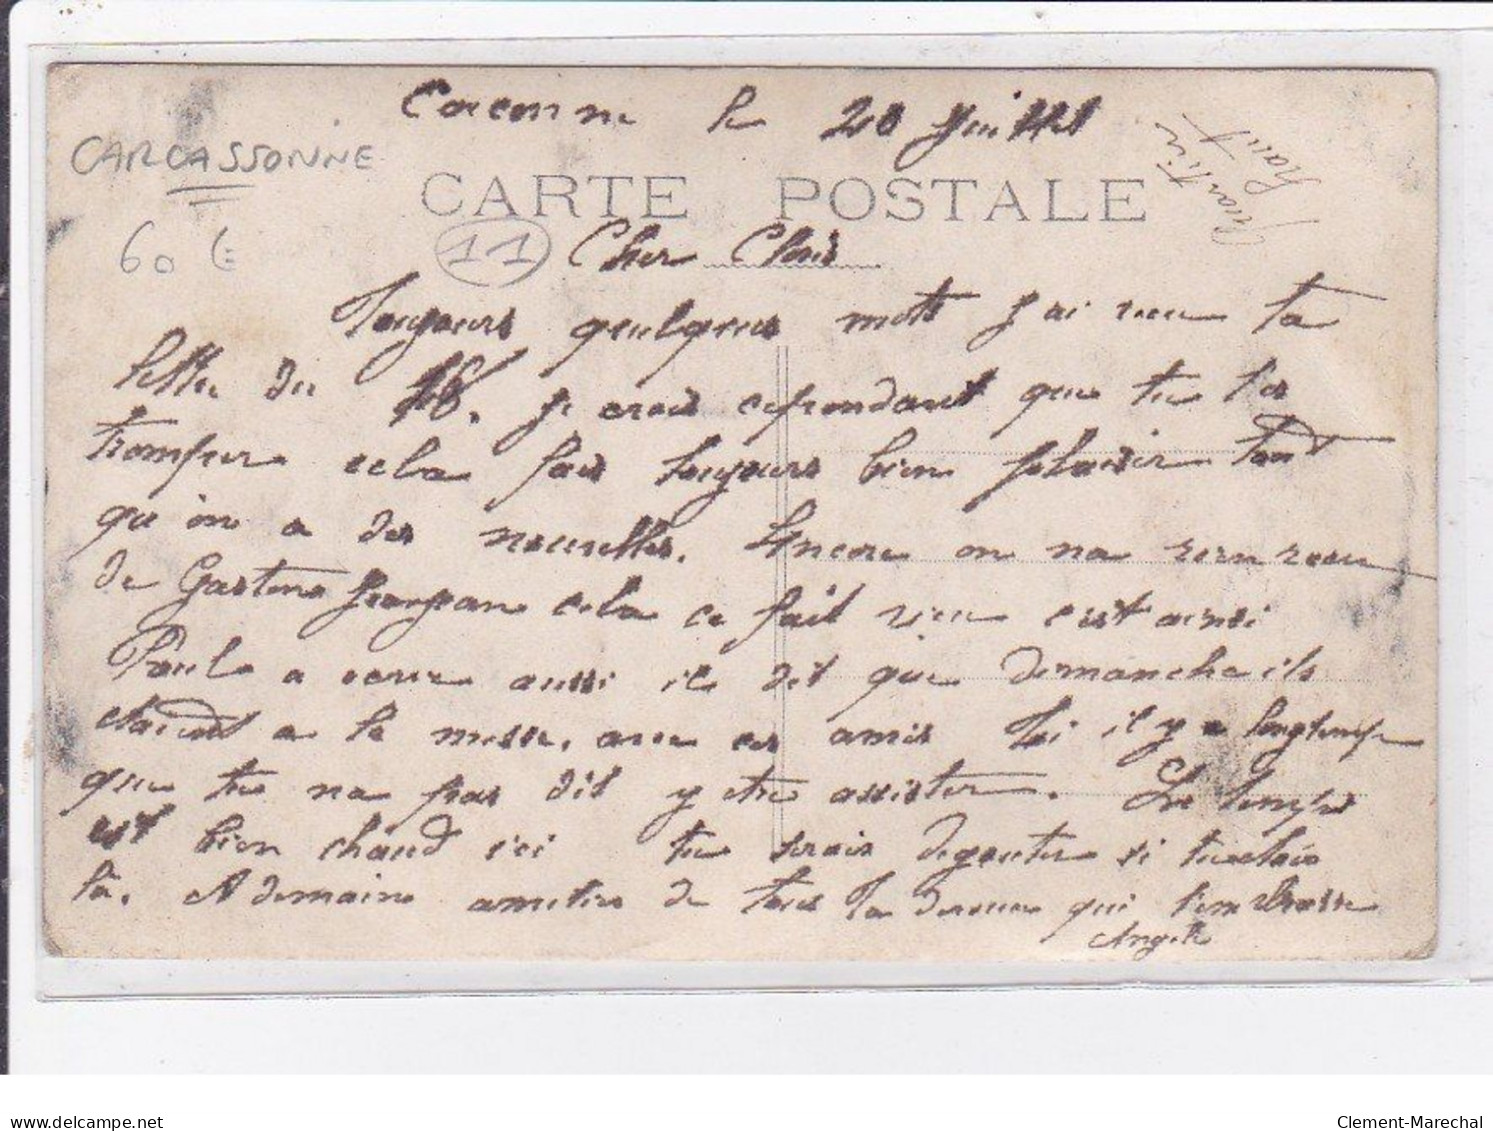 le 20 Juillet
CARCASSONNE
CARTE POSTALE
60 €
11
Cher
Toujours quelques mots j'ai ta
lettre du 18. Je crois cependant que tu t'es
tromper cela fais toujours bien plaisir tant
qu'on a des nouvelles. Encore on na rien recu
de Gaston cela ce fait rien c'est ainsi
Paul a aussi il dit que dimanche ils
étaient a la messe, avec ces amis toi il y a longtemps
que tu na pas dit y etre assister. Le temps
est bien chaud ici tu serais degouter si tu etais
là. A demain amities de tous Ta qui t'embrasse
Angele
delcampe.net
Clement-Marechal